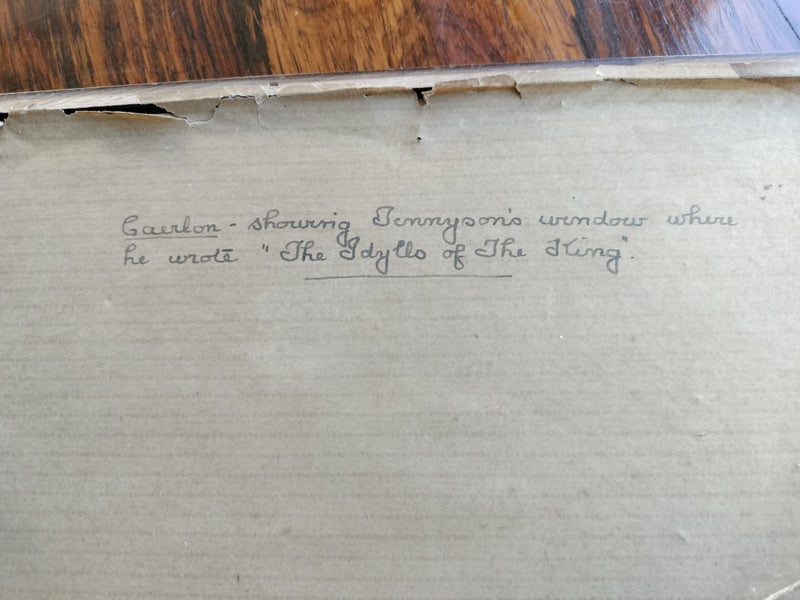 Caerlon - showing Tennyson's window where
he wrote "The Idylls of The King".